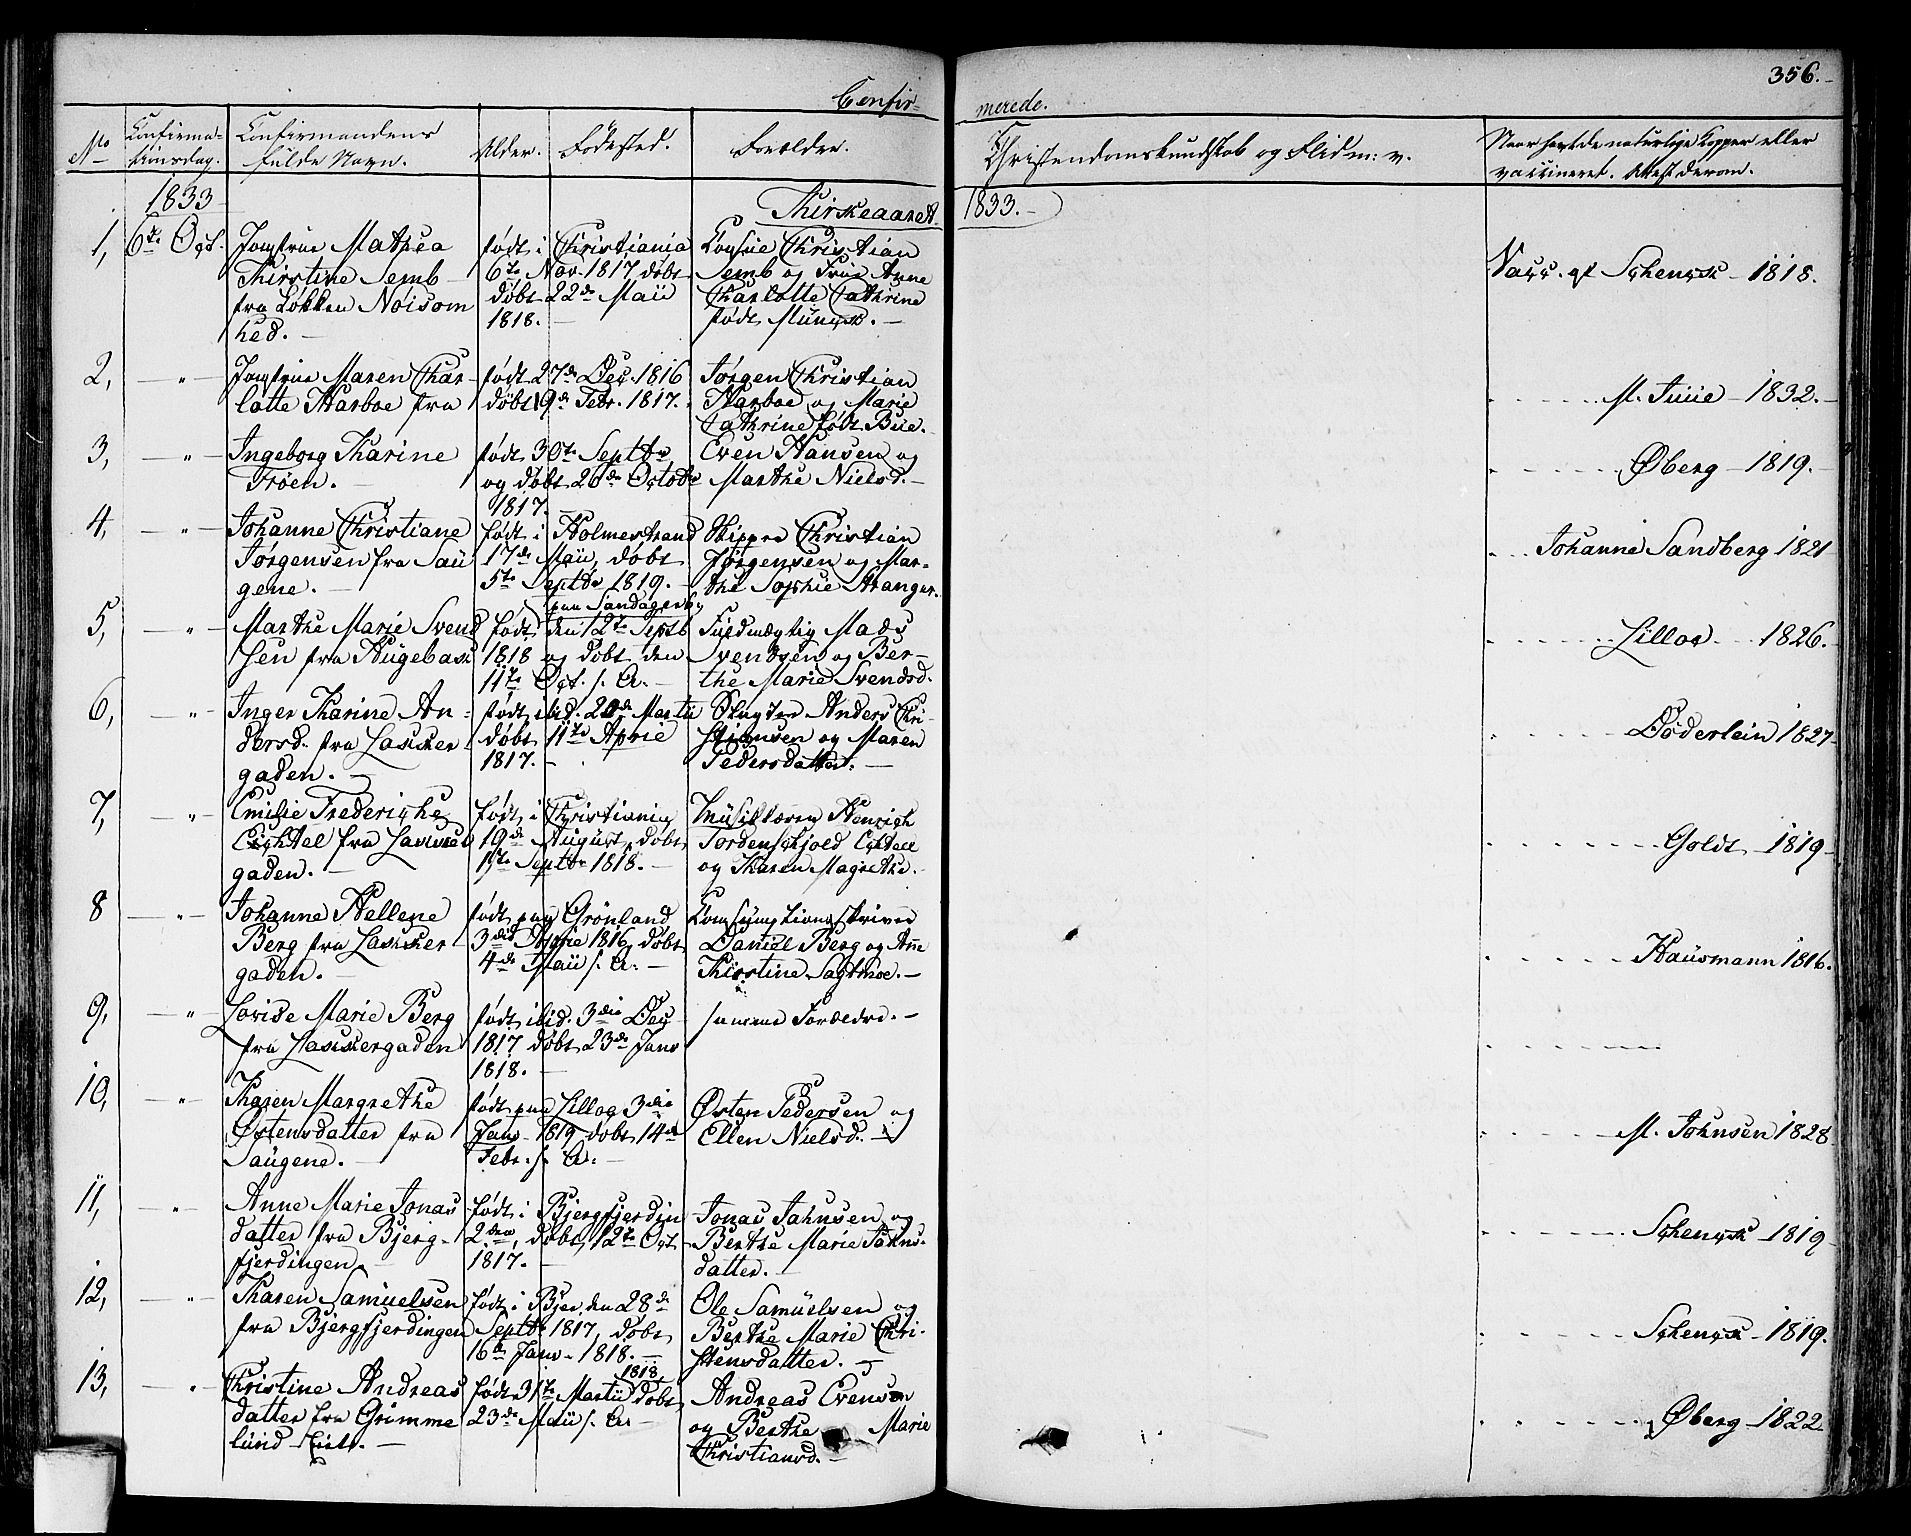 356.
Confir-
merede.
No
Confirma-
tionsdag.
Confirmandens
fulde Navn.
Alder.
Fødested.
Forældre.
Christendomskundskab og Flid m: v.
Naar havt de naturlige Kopper eller
vaccineret. Attest derom.
1833
Kirkeaaret
1833.
1,
6te Oct.
Jomfrue Mathea
Kirstine Semb
fra Løkken Noisom
hed.
født i Christiania
6te Nov. 1817, døbt
døbt 22de Maii
1818.
Christian
Semb og Frue Anne
Charlotte Cathrine
født Munch.
Vacc. af Schenck 1818.
2,
Jomfrue Maren Char-
lotte Harboe fra
født 27de Dec. 1816
døbt 9de Febr. 1817.
Jørgen Christian
Harboe og Marie
Cathrine født Bue.
M. Tuue 1832.
3,
Ingeborg Karine
Frøen.
født 30te Septbr
og døbt 26de Octobr
1817.
Even Hansen og
Marthe Nielsd.
Øberg 1819.
4,
Johanne Christiane
Jørgensen fra Sau
gene.
født i Holmestrand
17de Maii, døbt
5te Septbr 1819.
Skipper Christian
Jørgensen og Mar-
the Sophie Stranger.
Johanne Sandberg 1821
5,
Marthe Marie Svend
sen fra
paa Sandagerby
født den 12te Septb
1818 og døbt den
11te Oct. s. A.
Fuldmægtig Mads
Svendsen og Ber-
the Marie Svendsd.
Lillos 1826.
6,
Inger Karine An-
dersd. fra Lakker
gaden.
født ibid. 20de Martii
døbt 11te April
1817.
Anders Chri-
stiansen og Maren
Pedersdatter.
Döderlein 1827
7,
Emilie Frederiche
Eichtel fra Lakker
gaden.
født i Christiania
19de August, døbt
15te Septbr 1818.
Musiklærer Henrich
Tordenschjold Eichtell
og Karen Magrethe.
Goldt 1819
8
Johanne Hellene
Berg fra Lakker
gaden.
født paa Grønland
3die April 1816, døbt
4de Maii s. A.
Consumptionsskriver
Daniel Berg og Ane
Kirstine Sagtmoe.
Hausmann 1816.
9,
Lovise Marie Berg
fra Lakkergaden
født ibid. 3die Dec
1817 døbt 23de Janr
1818.
samme Forældre.
10,
Karen Margrethe
Østensdatter fra
Saugene.
født paa Lillog 3die
Janr 1819 døbt 14de
Febr. s. A.
Østen Pedersen og
Ellen Nielsd.
M. Johnsen 1828
11,
Anne Marie Jonas
datter fra Bjerg-
fjerdingen
født i Bjergfjerdin
2den, døbt 12te Oct
1817.
Jonas Jahnsen og
Berthe Marie Jahns-
datter.
Schenck 1819
12,
Karen Samuelsen
fra Bjergfjerdingen
født i Bjer. den 28de
Septbr 1817, døbt
16de Janr 1818.
Ole Samuelsen og
Berthe Marie Chri-
stensdatter.
Schenck 1819.
13,
Christine Andreas
datter fra Grimme
lund
født 31te Martii 1818, døbt
23de Maii s. A.
Andreas Evensen
og Berthe Marie
Christiansd.
Øberg 1822.